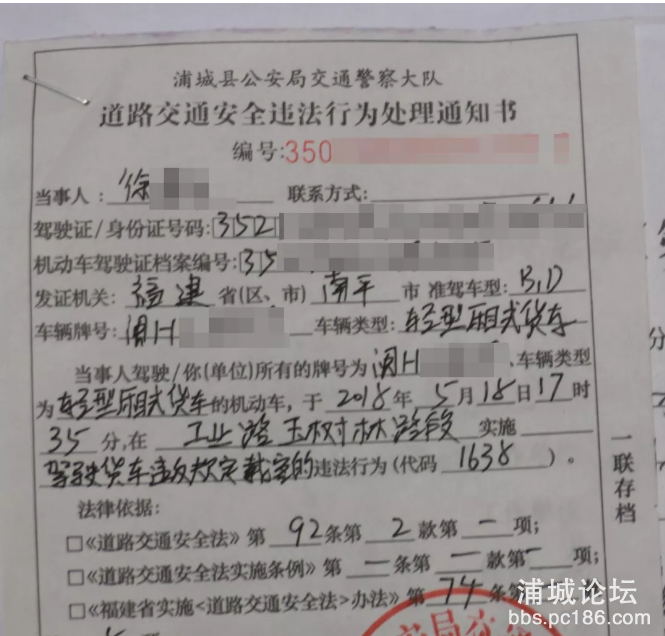 浦城县公安局交通警察大队
道路交通安全违法行为处理通知书
编号:350
当事人:徐 联系方式:
驾驶证/身份证号码:352
机动车驾驶证档案编号:35
发证机关:福建省(区、市)南平市 准驾车型:B1D
车辆牌号:闽H 车辆类型:轻型厢式货车
当事人驾驶/你(单位)所有的牌号为闽H、车辆类型
为轻型厢式货车的机动车,于2018年5月18日17时
35分,在工业路玉树林路段实施
驾驶货车违反规定载客的违法行为(代码1638)。
法律依据:
□《道路交通安全法》第92条第2款第一项;
□《道路交通安全法实施条例》第一条第一款第一项;
□《福建省实施<道路交通安全法>办法》第74条第
一联存档
浦城论坛
bbs.pc186.com